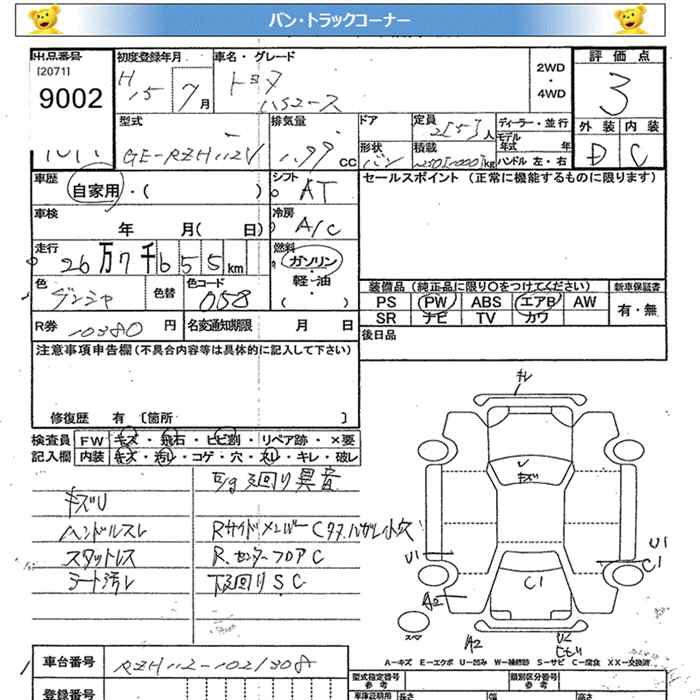 バン・トラックコーナー
出品番号 初度登録年月 車名・グレード 2WD・4WD 評価点
[2071]
9002 H15 7月 トヨタ ハイエース 3
外装 内装
D C
型式 排気量 ドア 定員 ディーラー・並行
GE-RZH112V 1.99 CC 2[5]人
形状 積載 モデル年式 年
バン kg ハンドル 左・右
車歴 自家用・( ) シフト AT セールスポイント (正常に機能するものに限ります)
車検 年 月( 日) 冷房 A/C
走行 26万7千655km 燃料 ガソリン・軽・油・( )
色 色替 色コード 058
装備品 (純正品に限り○をつけてください) 新車保証書
PS PW ABS エアB AW 有・無
SR ナビ TV カワ
R券 10380円 名変通知期限 月 日 後日品
注意事項申告欄(不具合内容等は具体的に記入して下さい)
修復歴 有 [箇所 ]
検査員 FW キズ・飛石・ヒビ割・リペア跡・×要
記入欄 内装 キズ・汚れ・コゲ・穴・スレ・キレ・破レ
E/g下回り異音
キズU
ハンドルスレ RサイドメンバーCサガレ小穴
スタットレス R.センターフロアC
シート汚レ 下廻りSC
キレ
U
キズ
U1
U1
C1
C1
A2
スペ
A2
U2
ヒビ
A-キズ E-エクボ U-凹み W-補修跡 S-サビ C-腐食 XX-交換済
車台番号 RZH112-1021308
型式指定番号 参考 類別区分番号 参考
登録番号 車庫証明用 参考 長さ 幅 高さ